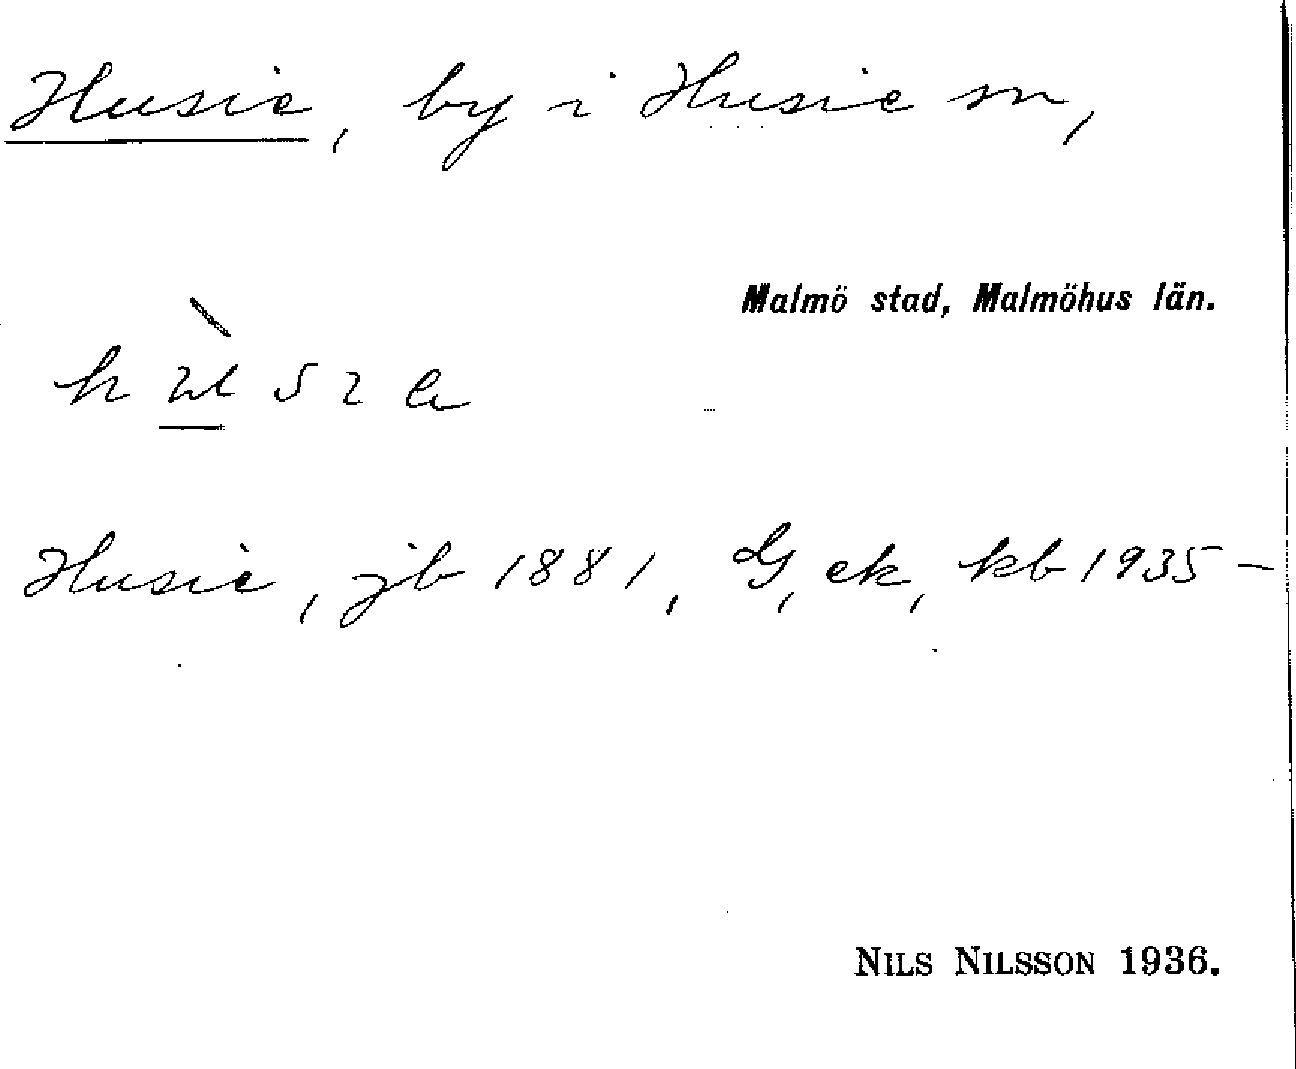 Husie, by i Husie sn,
Malmö stad, Malmöhus län.
Husie, jb 1881, G, ek, kb 1935 –
NILS NILSSON 1936.